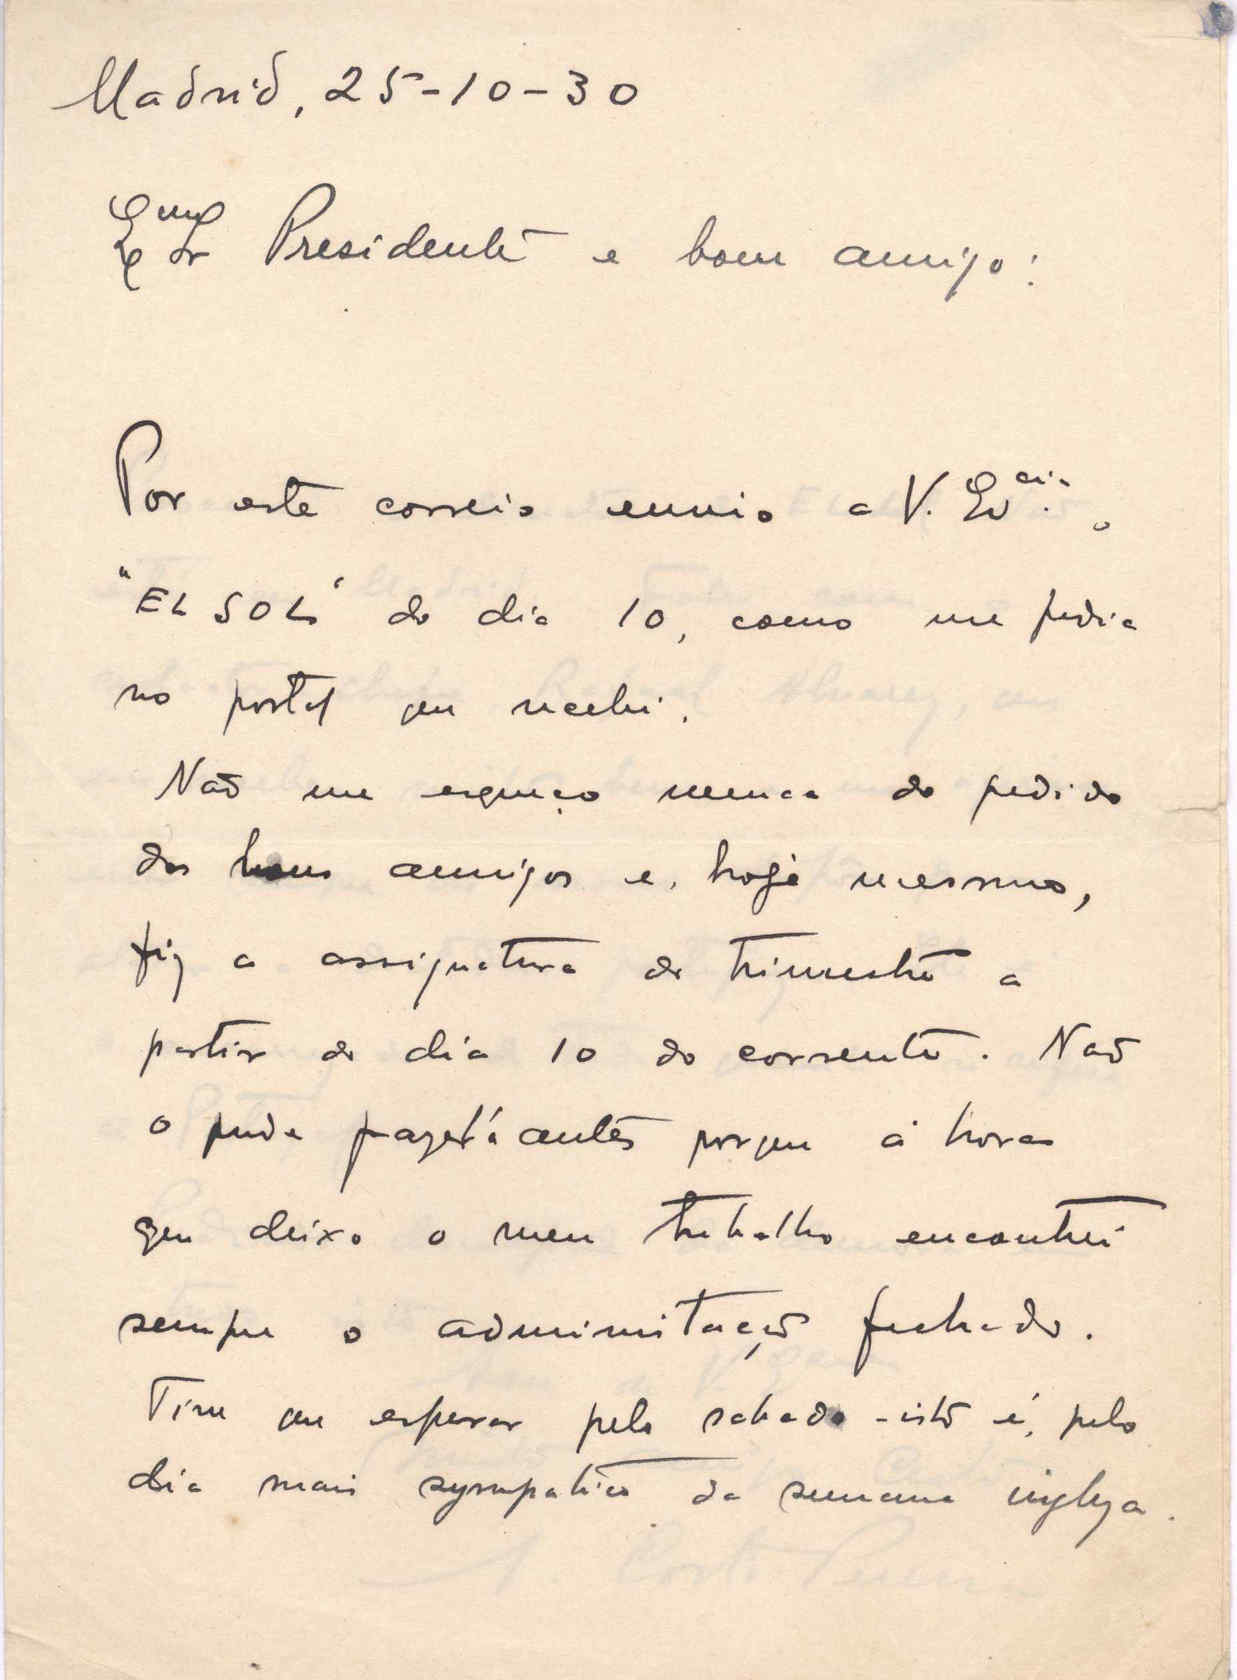 Madrid, 25-10-30
Exmo Sr Presidente e bom amigo:
Por este correio envio a V. Excia. o
"EL SOL" do dia 10, como me pedia
no postal que recebi.
Não me esqueço nunca do pedido
dos bons amigos e, hoje mesmo,
fiz a assignatura do trimestre a
partir do dia 10 do corrente. Não
o pude fazer antes porque á hora
que deixo o meu trabalho encontrei
sempre a administração fechada.
Tive que esperar pelo sabado - isto é, pelo
dia mais sympatico da semana ingleza.